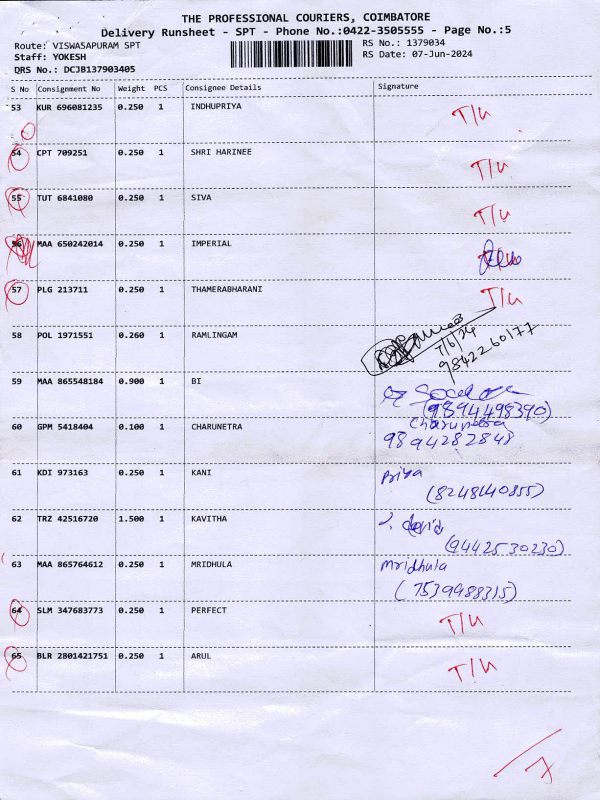 THE PROFESSIONAL COURIERS, COIMBATORE
Delivery Runsheet - SPT - Phone No.:0422-3505555 - Page No.:5
Route: VISWASAPURAM SPT
RS No.: 1379034
Staff: YOKESH
RS Date: 07-Jun-2024
DRS No.: DCJB137903405
S No Consignment No Weight PCS Consignee Details Signature
53 KUR 696081235 0.250 1 INDHUPRIYA T/U
54 CPT 709251 0.250 1 SHRI HARINEE T/U
55 TUT 6841080 0.250 1 SIVA T/U
56 MAA 650242014 0.250 1 IMPERIAL
57 PLG 213711 0.250 1 THAMERABHARANI T/U
58 POL 1971551 0.260 1 RAMLINGAM
7/6/24
9842260177
59 MAA 865548184 0.900 1 BI
(9894498390)
60 GPM 5418404 0.100 1 CHARUNETRA Charunetra
9894282848
61 KDI 973163 0.250 1 KANI Priya
(8248140855)
62 TRZ 42516720 1.500 1 KAVITHA
(9442530230)
63 MAA 865764612 0.250 1 MRIDHULA Mridhula
(7539988315)
64 SLM 347683773 0.250 1 PERFECT T/U
65 BLR 2801421751 0.250 1 ARUL T/U
7